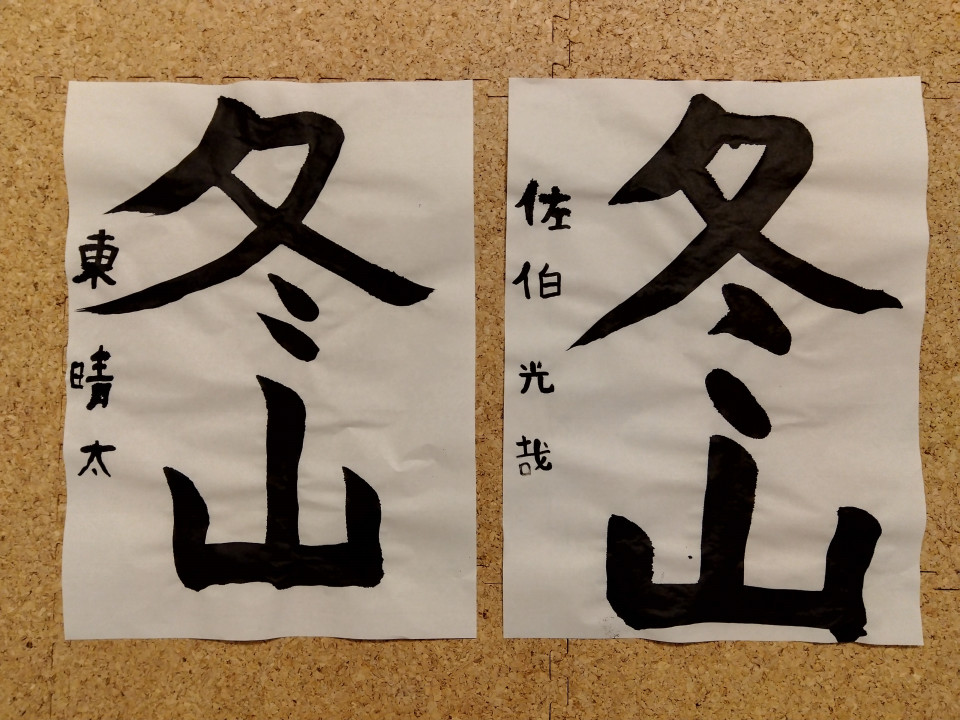 冬山
東晴太
冬山
佐伯光哉